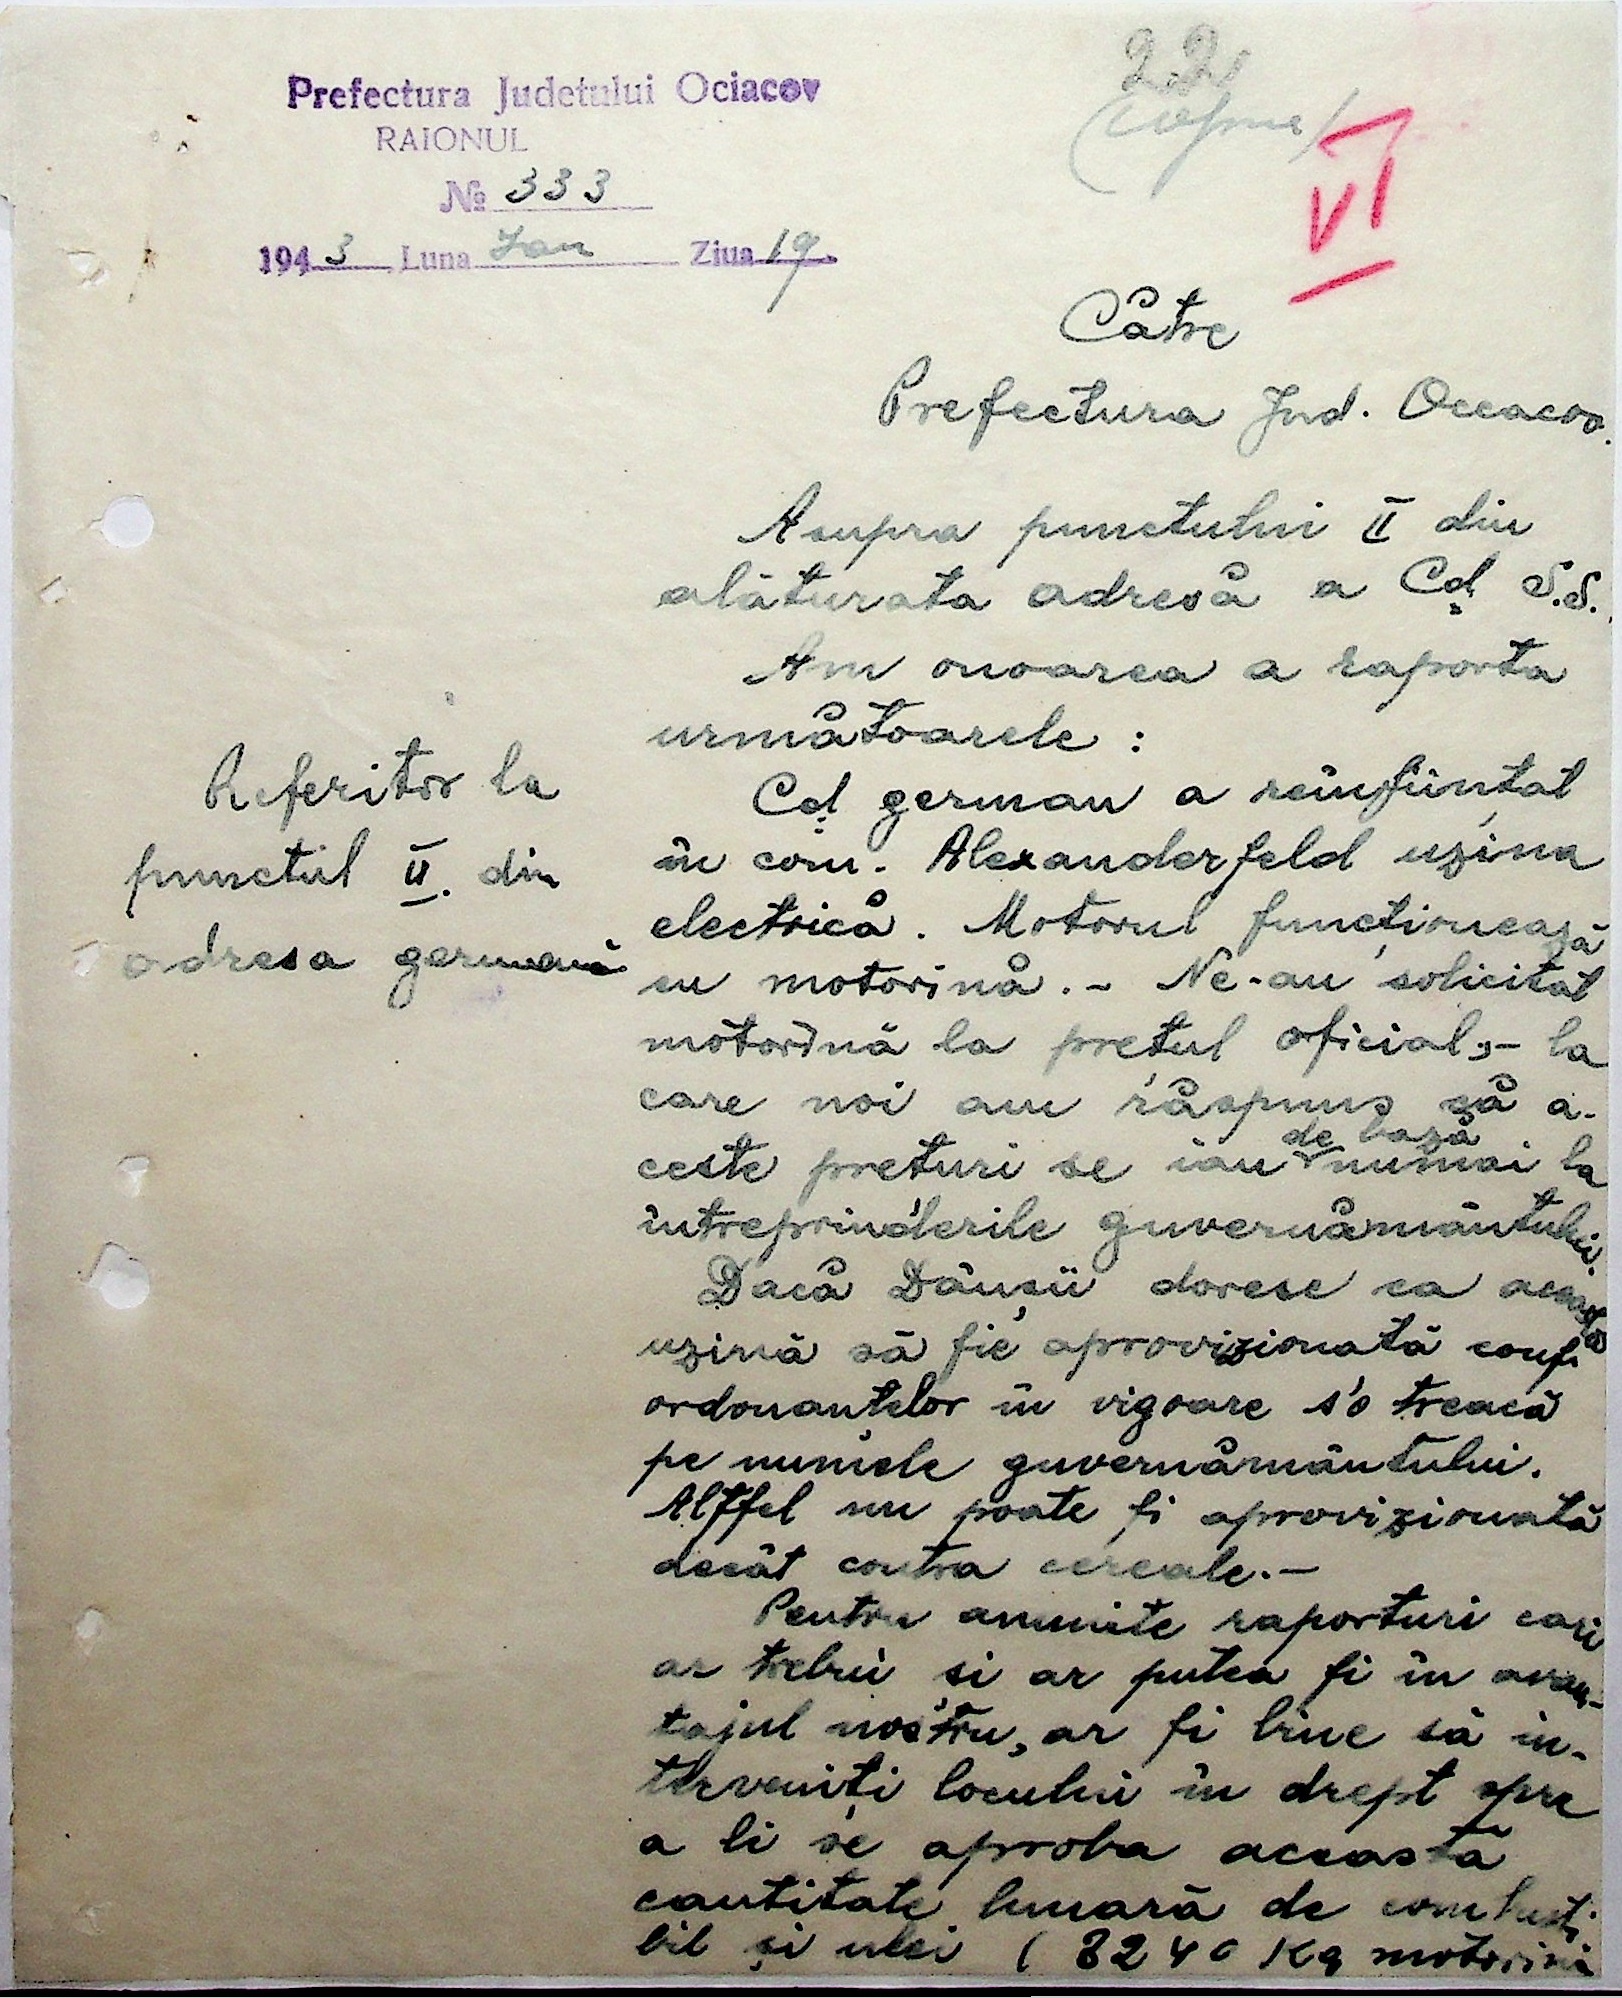 22
(copie)
VI
Prefectura Judetului Ociacov
RAIONUL
№ 333
1943 Luna Ian Ziua 19
Către
Prefectura Jud. Oceacov.
Asupra punctului II din
alăturata adresă a Cd. S.S.
Am onoarea a raporta
următoarele :
Referitor la
punctul II. din
adresa germană
Cd. german a reînființat
în com. Alexanderfeld uzina
electrică. Motorul funcționează
cu motorină.- Ne-au solicitat
motorină la prețul oficial,- la
care noi am răspuns că a-
ceste prețuri se iau de bază numai la
întreprinderile guvernământului.
Dacă Dânșii doresc ca această
uzină să fie aprovizionată conf.
ordonanțelor în vigoare s'o treacă
pe numele guvernământului.
Altfel nu poate fi aprovizionată
decât contra cereale.-
Pentru anumite raporturi cari
ar trebui si ar putea fi în avan-
tajul nostru, ar fi bine să in-
terveniți locului în drept spre
a li se aproba aceasta
cantitate lunară de combusti-
bil și ulei ( 3240 Kg motorină